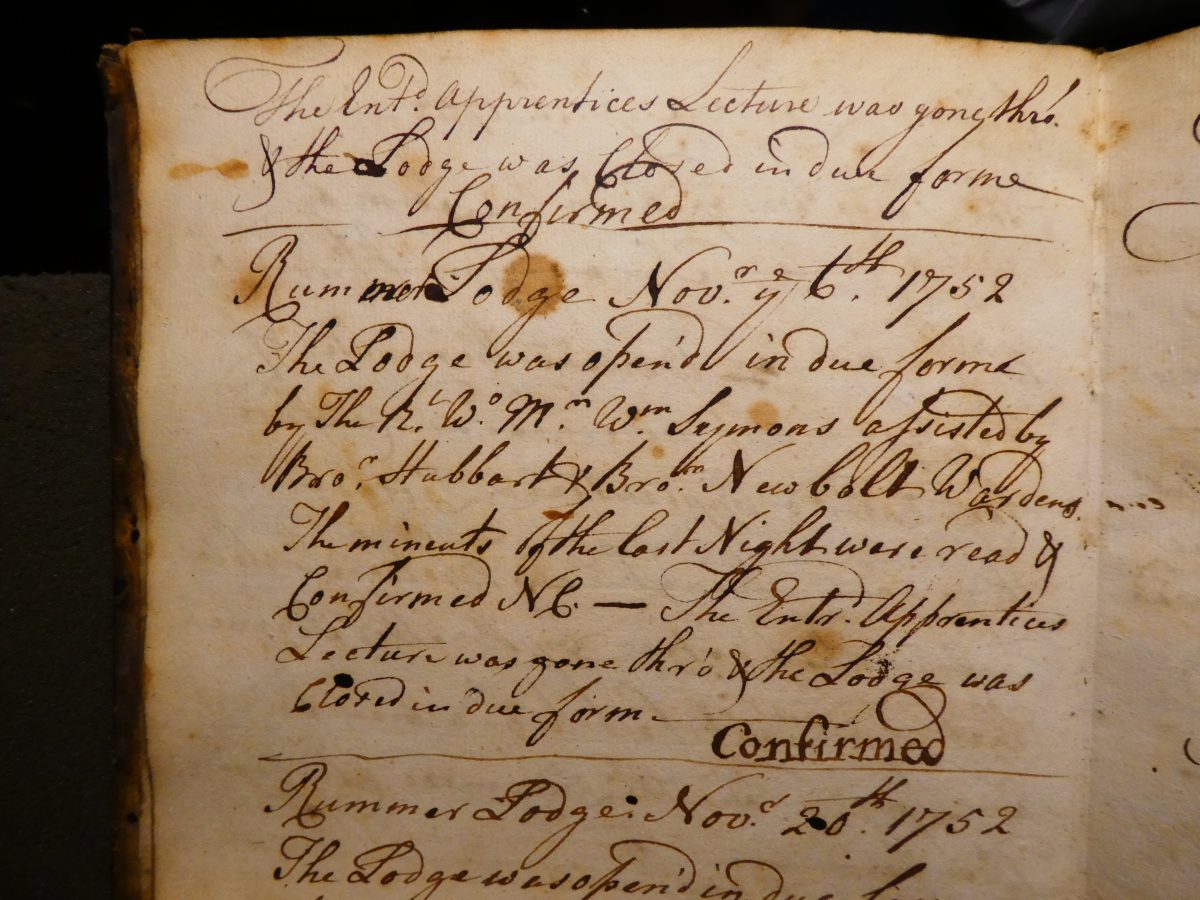 The Ent.d Apprentices Lecture was gone thrō.
& the Lodge was Closed in due forme
Confirmed
Rummer Lodge Nov.r ye 6th. 1752
The Lodge was open'd in due forme
by The Rt. Wo. Mr. Wm. Symons assisted by
Bror. Hubbart & Bror. Newbolt Wardens.
The minents of the last Night were read &
Confirmed NC. — The Entrd. Apprentices
Lecture was gone thr'o & the Lodge was
Closed in due form
Confirmed
Rummer Lodge: Nov.r 20th. 1752
The Lodge was open'd in due